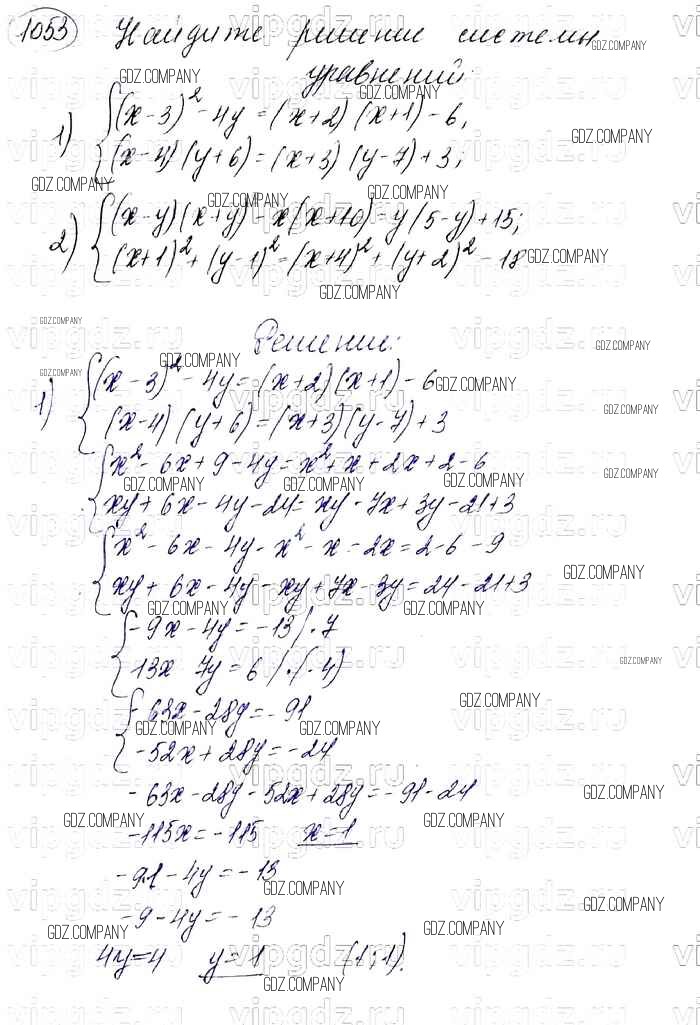 1053 Найдите решение системы
уравнений:
1) {(x-3)² - 4y = (x+2)(x+1) - 6,
(x-4)(y+6) = (x+3)(y-7) + 3;
2) {(x-y)(x+y) - x(x+10) = y(5-y) + 15;
(x+1)² + (y-1)² = (x+4)² + (y+2)² - 18
Решение:
1) {(x-3)² - 4y = (x+2)(x+1) - 6
(x-4)(y+6) = (x+3)(y-7) + 3
{x² - 6x + 9 - 4y = x² + x + 2x + 2 - 6
xy + 6x - 4y - 24 = xy - 7x + 3y - 21 + 3
{x² - 6x - 4y - x² - x - 2x = 2 - 6 - 9
xy + 6x - 4y - xy + 7x - 3y = 24 - 21 + 3
{-9x - 4y = -13 /·7
13x 7y = 6 /·(-4)
{-63x - 28y = -91
-52x + 28y = -24
-63x - 28y - 52x + 28y = -91 - 24
-115x = -115 x = 1
-9·1 - 4y = -13
-9 - 4y = -13
4y = 4 y = 1 (1; 1).